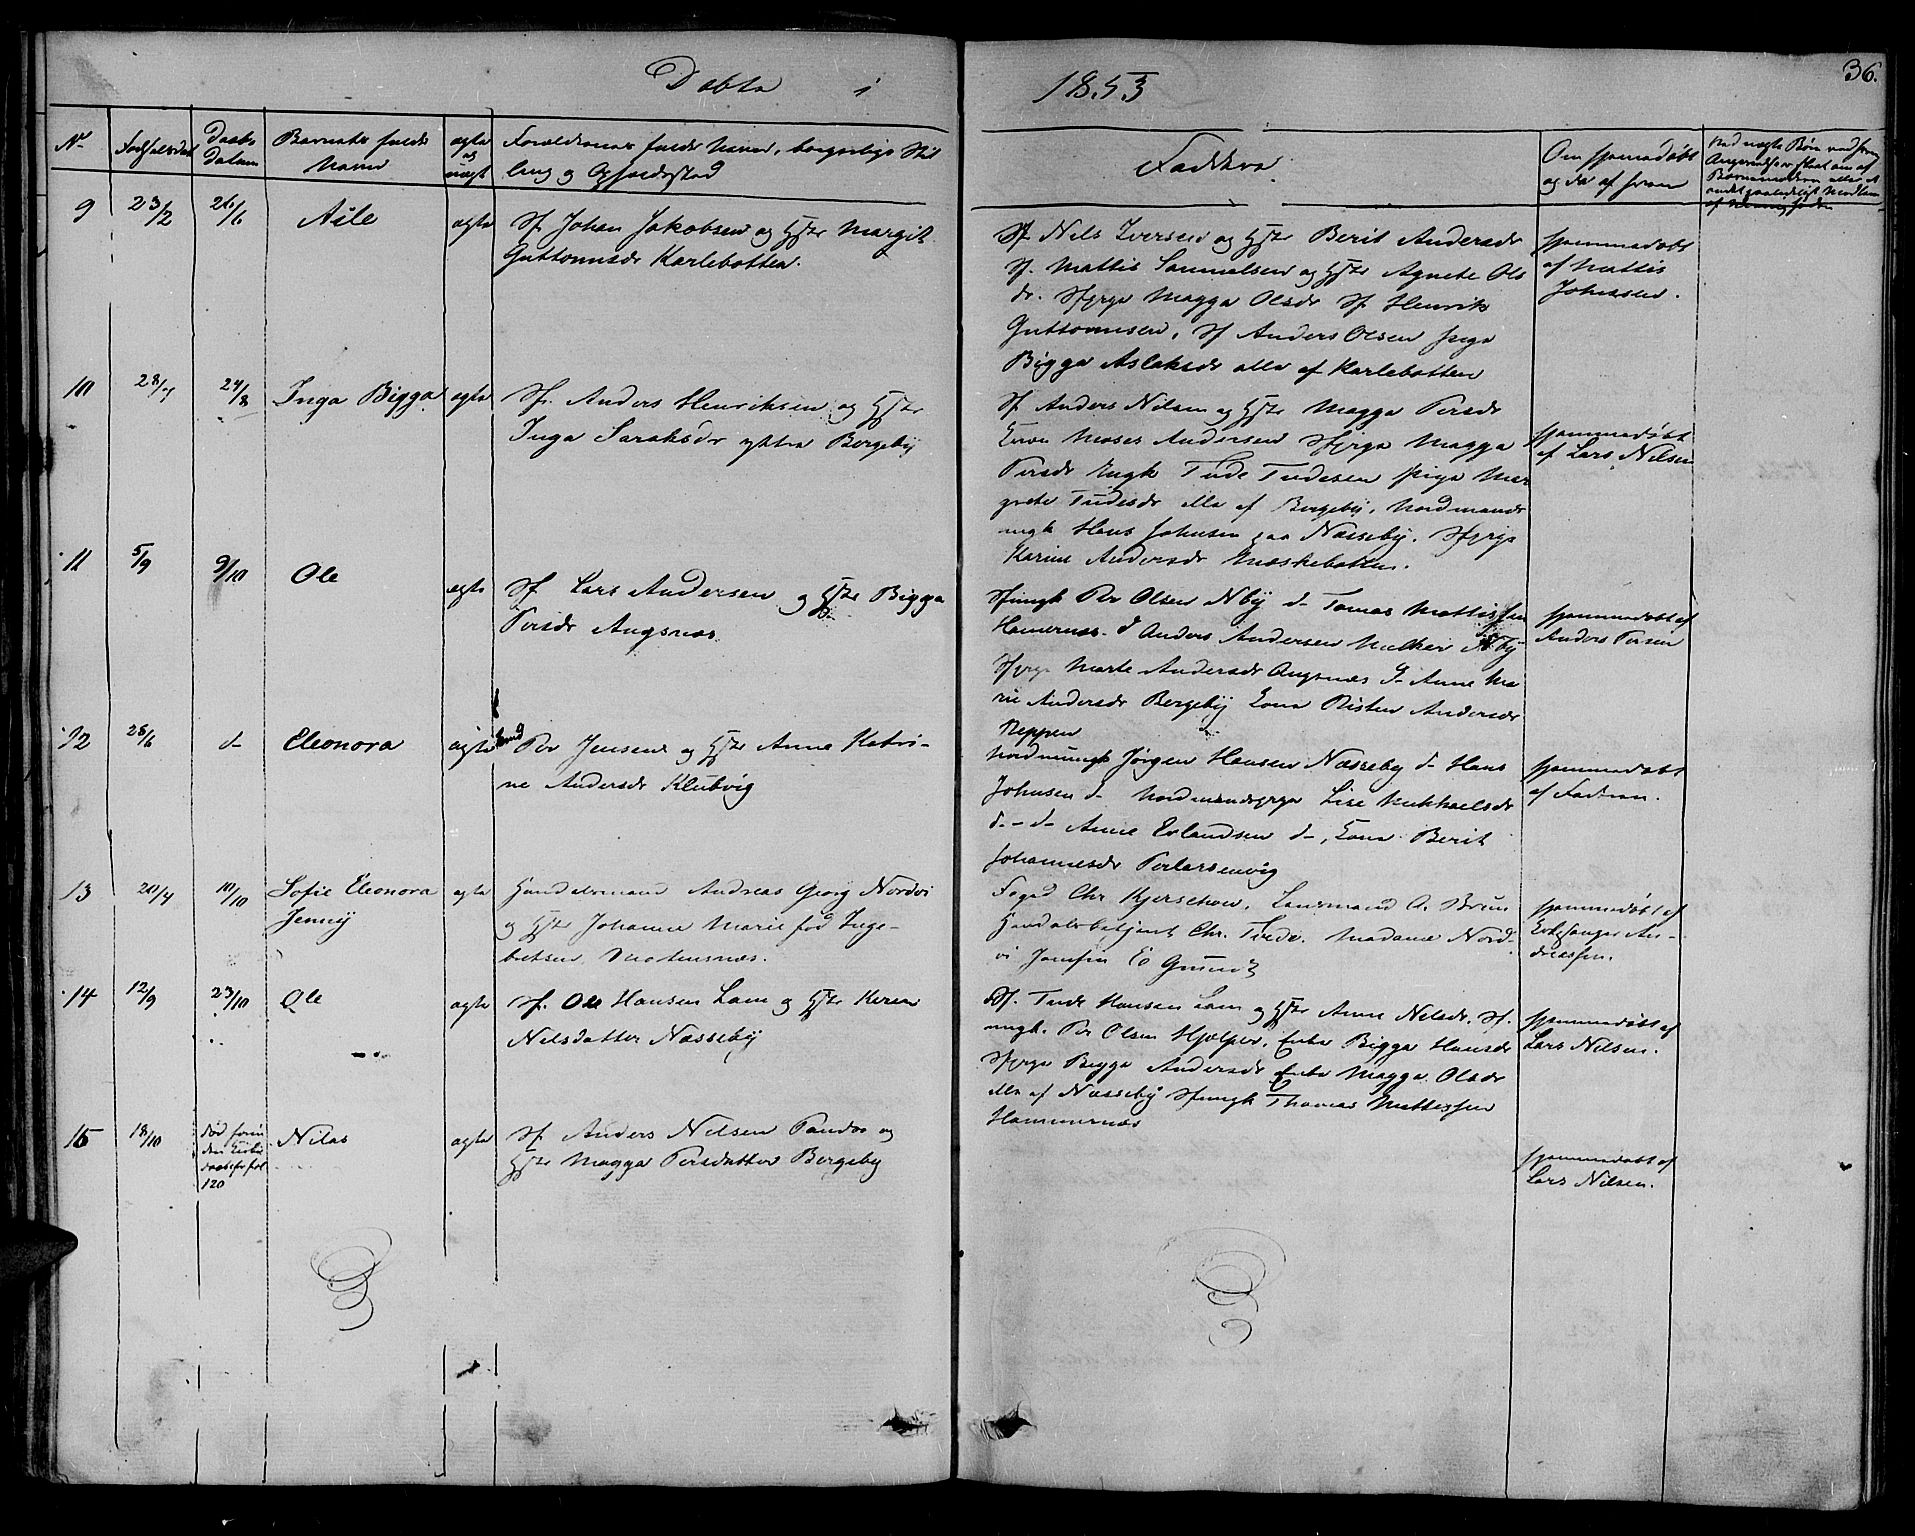 Døbte i
1853
36.
No
Fødselsdat
Daabs
datum
Barnets fulde
Navn
ægte
og
uægt
Forældrenes fulde Navne, borgerlige Stil
ling og Opholdssted
Faddere.
Om hjemmedøbt
og da af hvem
9
23/2
26/6
Aile
ægte
Sf. Johan Jakobsen og Hstr Margit
Guttormsdr Karlebotten.
Sf Nels Iversen og Hstr Berit Andersdr
Sf. Mattis Samuelsen og Hstr Agnete Ols
dr. Sfprge Magga Olsdr Sf Henrik
Guttormsen, Sf Anders Olsen pige
Bigga Aslaksdr alle af Karlebotten
hjemmedøbt
af Mattis
Johnssen.
10
28/7
24/8
Inga Bigga
ægte
Sf. Anders Henriksen og Hstr
Inga Saraksdr yttre Bergeby
Sf Anders Nilsen og Hstr Magga Persdr
Moses Andersen Magga
Persdr Ungk Tude Tudesen pige Mar
grete Tudesdr alle af Bergeby, Nordmands
ungk Hans Johnsen paa Næsseby.
Karine Andersdr Mæskebotten.
hjemmedøbt
af Lars Nilsen
11
5/9
9/10
Ole
ægte
Sf Lars Andersen og Hstr Bigga
Persdr Angsnæs
Sfungk Per Olsen Nby d- Tomas Mattissen
Hamernæs. d Anders Andersen
Marte Andersdr Angsnæs d- Anne Ma
rie Andersdr Bergeby Kone Risten Andersdr
Reppen
hjemmedøbt af
Anders Persen
12
28/6
d-
Eleonora
ægte
Per Jensen og Hstr Anne Katri-
ne Andersdr Klubvig
Nordmungk Jørgen Hansen Næsseby d- Hans
Johnsen d- Lise Mikkaelsdr
d- - d- Anne Erlandsen d-, Kone Berit
Johannesdr Perlarsenvig
hjemmedøbt
af Fadren.
13
20/4
10/10
Sofie Eleonora
Jenny
ægte
Handelsmand Andreas Georg Nordvi
og Hstr Johanne Marie fød Inge-
betsen Mortensnæs.
Foged Chr Kjerschow, Lensmand A. Brun
Handelsbetjent Chr. Trede. Madame Nord-
vi Jomfru E Grundt
hjemmedøbt af
Kirkesanger An-
dreassen.
14
12/9
23/10
Ole
ægte
Sf. Ole Hansen Lam og Hstr Keren
Nilsdatter Næsseby
Sf. Tude Hansen Lam og Hstr Anne Nelsdr. Sf.
ungk. Per Olsen Hjælper, Enke Bigga Hansdr
Bigga Andersdr Enke Magga Olsdr
alle af Næsseby Sfungk Thomas Mattissen
Hammernæs
hjemmedøbt af
Lars Nilsen.
15
18/10
død forin
den Kirke
daaben fol
120
Nilas
ægte
Sf Anders Nelsen Pandos og
Hstr Magga Persdatter Bergeby
hjemmedøbt af
Lars Nilsen.